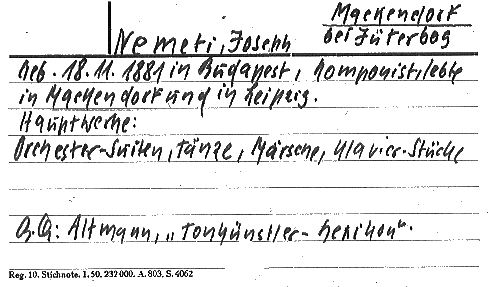 Mackendorf
Nemeti, Joseph bei Jüterbog
Geb. 18.11.1881 in Budapest, Komponist, lebte
in Mackendorf und in Leipzig.
Hauptwerke:
Orchester-Suiten, Tänze, Märsche, Klavier-Stücke
Altmann, „Tonkünstler-Lexikon".
Reg. 10. Stichnote. 1. 50. 232000. A. 803. S. 4062